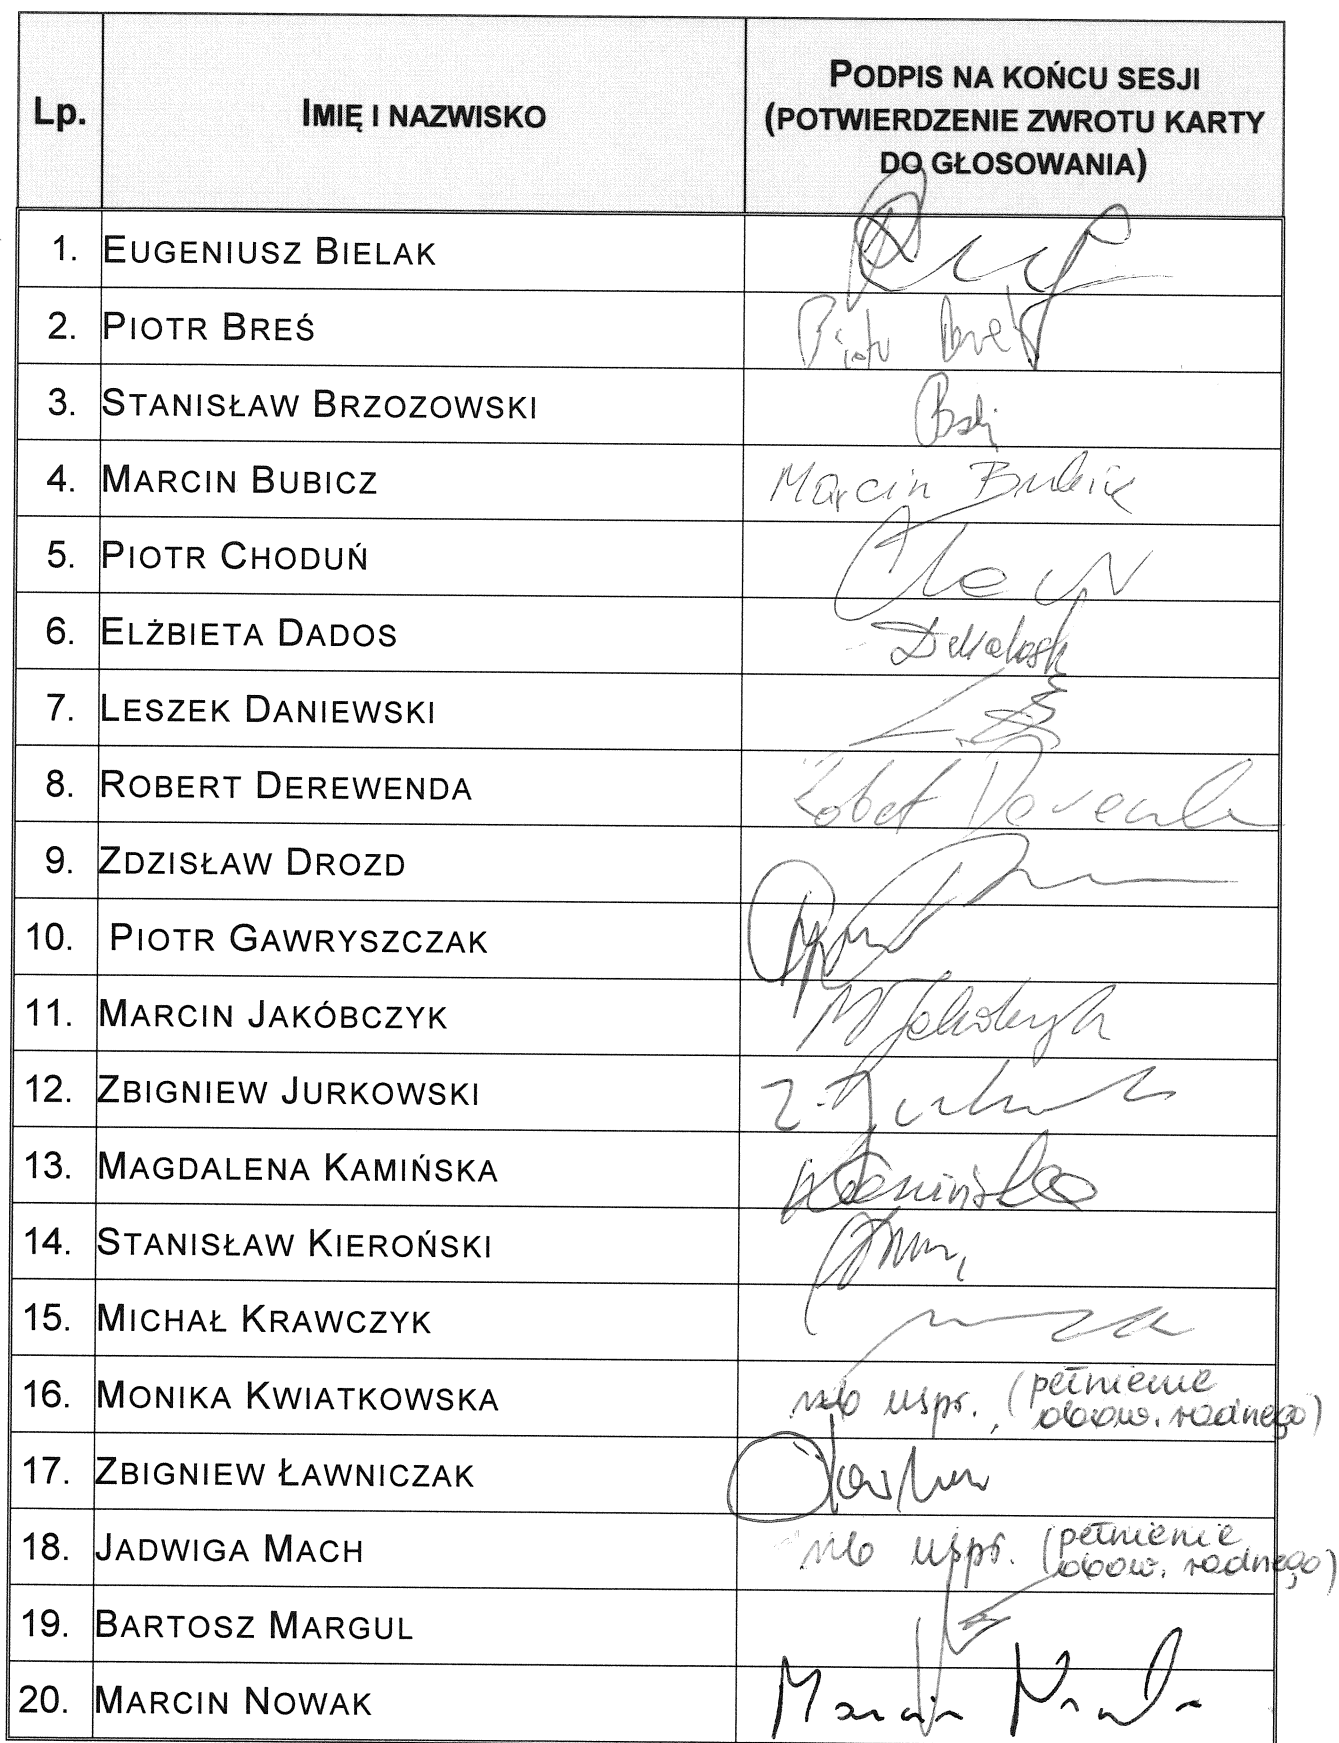 Lp.
IMIĘ I NAZWISKO
PODPIS NA KOŃCU SESJI
(POTWIERDZENIE ZWROTU KARTY
DO GŁOSOWANIA)
1. EUGENIUSZ BIELAK
2. PIOTR BREŚ Piotr Breś
3. STANISŁAW BRZOZOWSKI
4. MARCIN BUBICZ Marcin Bubicz
5. PIOTR CHODUŃ
6. ELŻBIETA DADOS
7. LESZEK DANIEWSKI
8. ROBERT DEREWENDA Robert Derewenda
9. ZDZISŁAW DROZD
10. PIOTR GAWRYSZCZAK
11. MARCIN JAKÓBCZYK M Jakóbczyk
12. ZBIGNIEW JURKOWSKI
13. MAGDALENA KAMIŃSKA Kamińska
14. STANISŁAW KIEROŃSKI
15. MICHAŁ KRAWCZYK
16. MONIKA KWIATKOWSKA nb uspr. (pełnienie
obow. radnego)
17. ZBIGNIEW ŁAWNICZAK
18. JADWIGA MACH nb uspr. (pełnienie
obow. radnego)
19. BARTOSZ MARGUL
20. MARCIN NOWAK Marcin Nowak